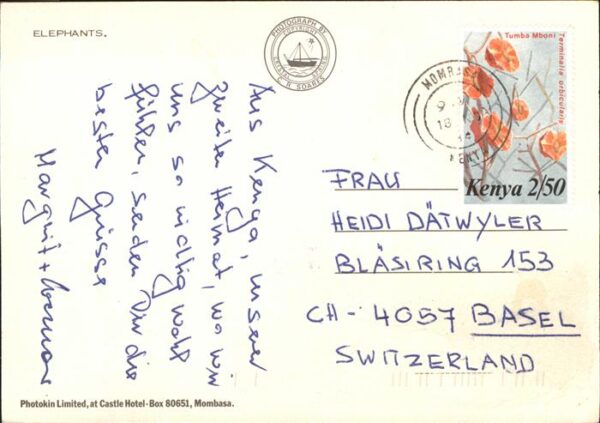 ELEPHANTS.
PHOTOGRAPH BY
COPYRIGHT
C H SOARES
Tumba Mboni
Terminalia orbicularis
Kenya 2/50
MOMBASA
KENYA
Aus Kenya, unser
zweiten Heimat, wo wir
uns so richtig wohl
fühlen, senden Dir die
besten Grüsse
Margrit +
FRAU
HEIDI DÄTWYLER
BLÄSIRING 153
CH - 4057 BASEL
SWITZERLAND
Photokin Limited, at Castle Hotel-Box 80651, Mombasa.